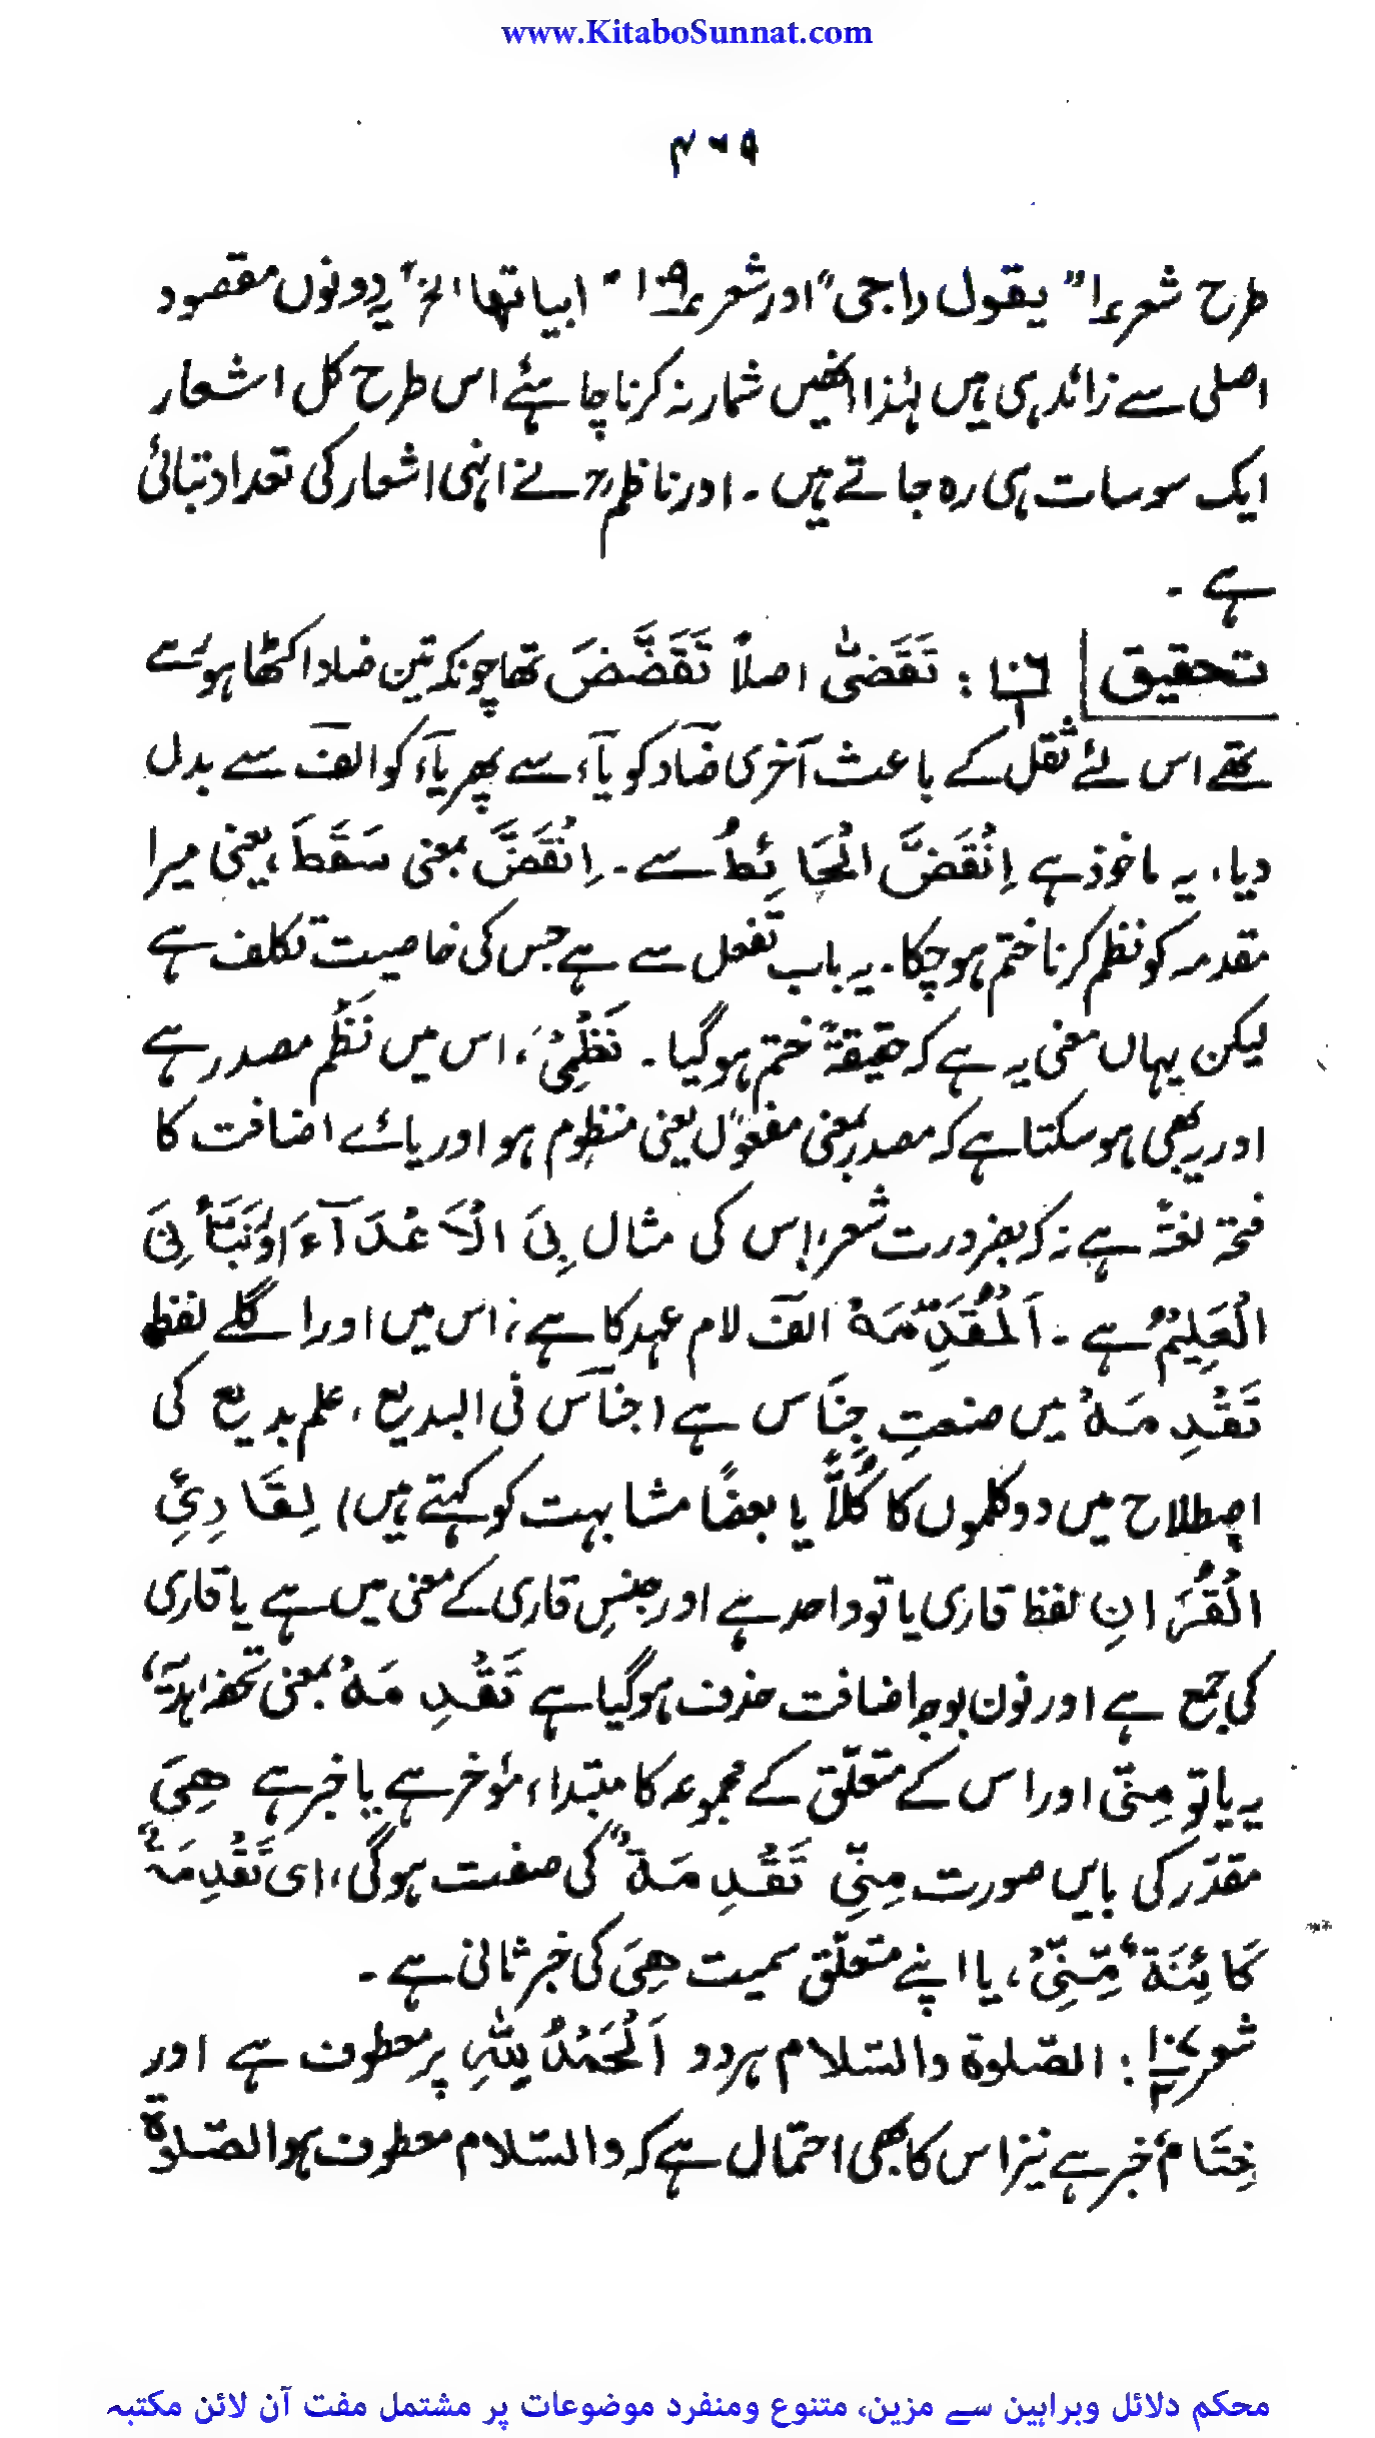 www.KitaboSunnat.com
۴۰۹
طرح شعر ۱ "یقول راجی" اور شعر ۱۰۹ "ابیاتھا الخ" یہ دونوں مقصود
اصلی سے زائد ہی ہیں لہٰذا انھیں شمار نہ کرنا چاہئے اس طرح کل اشعار
ایک سو سات ہی رہ جاتے ہیں ۔ اور ناظمؒ نے انہی اشعار کی تعداد بتائی
ہے ۔
تحقیق ۱۰۶/۱ : تَقَضّٰی اصلاً تَقَضَّضَ تھا چونکہ تین ضاد اکٹھا ہوئے
تھے اس لئے ثقل کے باعث آخری ضاد کو یاء سے پھر یاء کو الف سے بدل
دیا، یہ ماخوذ ہے اِنْقَضَّ الْحَائِطُ سے ۔ اِنْقَضَّ بمعنی سَقَطَ، یعنی میرا
مقدمہ کو نظم کرنا ختم ہو چکا ۔ یہ باب تفعل سے ہے جس کی خاصیت تکلف ہے
لیکن یہاں معنی یہ ہے کہ حقیقۃً ختم ہو گیا ۔ نَظْمِیْ، اس میں نَظْم مصدر ہے
اور یہ بھی ہو سکتا ہے کہ مصدر بمعنی مفعول یعنی منظوم ہو اور یائے اضافت کا
فتحہ لغۃً ہے نہ کہ بضرورت شعر، اس کی مثال بِیَ الْاَعْدَآءَ اور نَبَّأَنِیَ
الْعَلِیْمُ ہے ۔ اَلْمُقَدِّمَهْ الف لام عہد کا ہے، اس میں اور اگلے لفظ
تَقْدِمَهْ میں صنعتِ جِنَاس ہے (جناس فی البدیع، علم بدیع کی
اصطلاح میں دو کلموں کا کُلاًّ یا بعضاً مشابہت کو کہتے ہیں) لِقَارِئِ
الْقُرَانِ لفظ قاری یا تو واحد ہے اور جنسِ قاری کے معنی میں ہے یا قاری
کی جمع ہے اور نون بوجہ اضافت حذف ہو گیا ہے تَقْدِمَهْ بمعنی تحفہ، ہدیہ،
یہ یا تو مِنِّی اور اس کے متعلّق کے مجموعہ کا مبتداء مؤخر ہے یا خبر ہے هِیَ
مقدّر کی بایں صورت مِنِّی تَقْدِمَةٌ کی صفت ہو گی، ای تَقْدِمَةٌ
کَائِنَةٌ مِّنِّیْ، یا اپنے متعلّق سمیت هِیَ کی خبر ثانی ہے ۔
شعر ۱۰۷/۲ : الصّلوۃ والسّلام ہر دو اَلْحَمْدُ لِلّٰہِ پر معطوف ہے اور
خِتَامٌ خبر ہے نیز اس کا بھی احتمال ہے کہ والسّلام معطوف ہو الصّلوۃ
محکم دلائل وبراہین سے مزین، متنوع ومنفرد موضوعات پر مشتمل مفت آن لائن مکتبہ